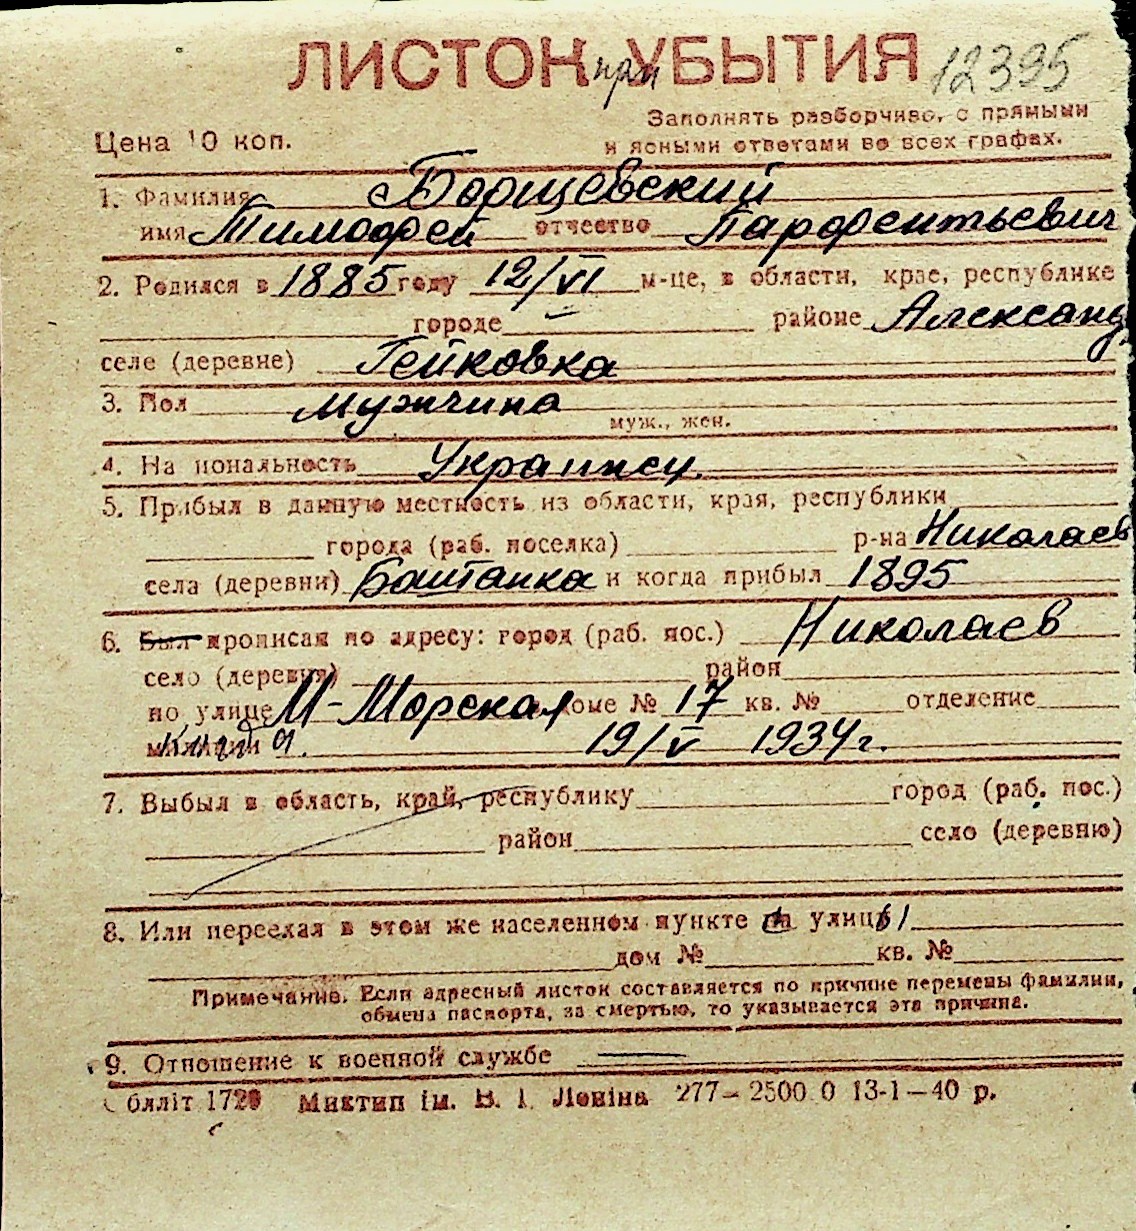 ЛИСТОК при УБЫТИЯ 12395
Заполнять разборчиво, с прямыми
Цена 10 коп.
и ясными ответами во всех графах.
1. Фамилия Борщевский
имя Тимофей отчество Парфентьевич
2. Родился в 1885 году 12/VI м-це, в области, крае, республике
городе районе Александ
селе (деревне) Гейковка
3. Пол мужчина
муж., жен.
4. Национальность Украинец
5. Прибыл в данную местность из области, края, республики
города (раб. поселка) р-на Николаев
села (деревни) Баштанка и когда прибыл 1895
6. Был прописан по адресу: город (раб. пос.) Николаев
село (деревня) район
по улице М-Морская доме № 17 кв. № отделение
милиции 19/V 1934 г.
7. Выбыл в область, край, республику город (раб. пос.)
район село (деревню)
8. Или переехал в этом же населенном пункте на улицу
дом № кв. №
Примечание. Если адресный листок составляется по причине перемены фамилии,
обмена паспорта, за смертью, то указывается эта причина.
9. Отношение к военной службе —
блліт 1720 Миктип ім. В. І. Леніна 277—2500 0 13-1—40 р.